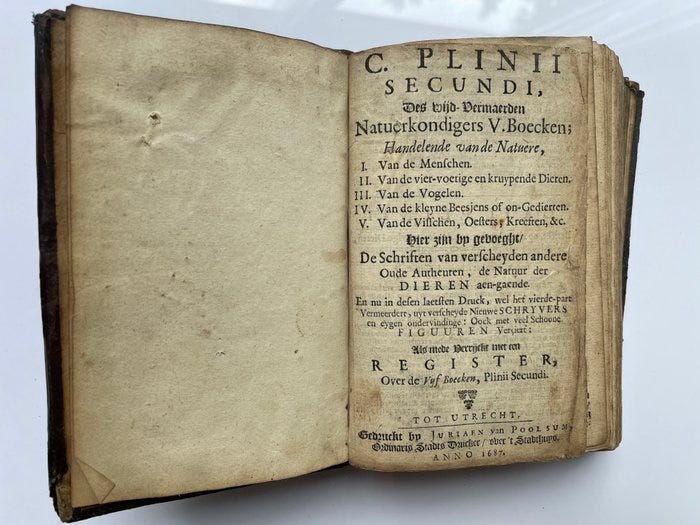 C. PLINII
SECUNDI,
Des wijd-Vermaerden
Natuerkondigers V. Boecken;
Handelende van de Natuere,
I. Van de Menſchen.
II. Van de vier-voetige en kruypende Dieren.
III. Van de Vogelen.
IV. Van de kleyne Beesjens of on-Gedierten.
V. Van de Viſſchen, Oeſters, Kreeften, &c.
Hier zijn by gevoeght/
De Schriften van verſcheyden andere
Oude Autheuren, de Natuur der
DIEREN aen-gaende.
En nu in deſen laetſten Druck, wel het vierde-part
Vermeerdert, uyt verſcheyde Nieuwe SCHRYVERS
en eygen ondervindinge: Oock met veel Schoone
FIGUUREN Verçiert:
Als mede Verrijckt met een
REGISTER,
Over de Vijf Boecken, Plinii Secundi.
TOT UTRECHT,
Gedruckt by JURIAEN van POOLSUM,
Ordinaris Stadts Drucker/ over 't Stadthuys.
ANNO 1687.